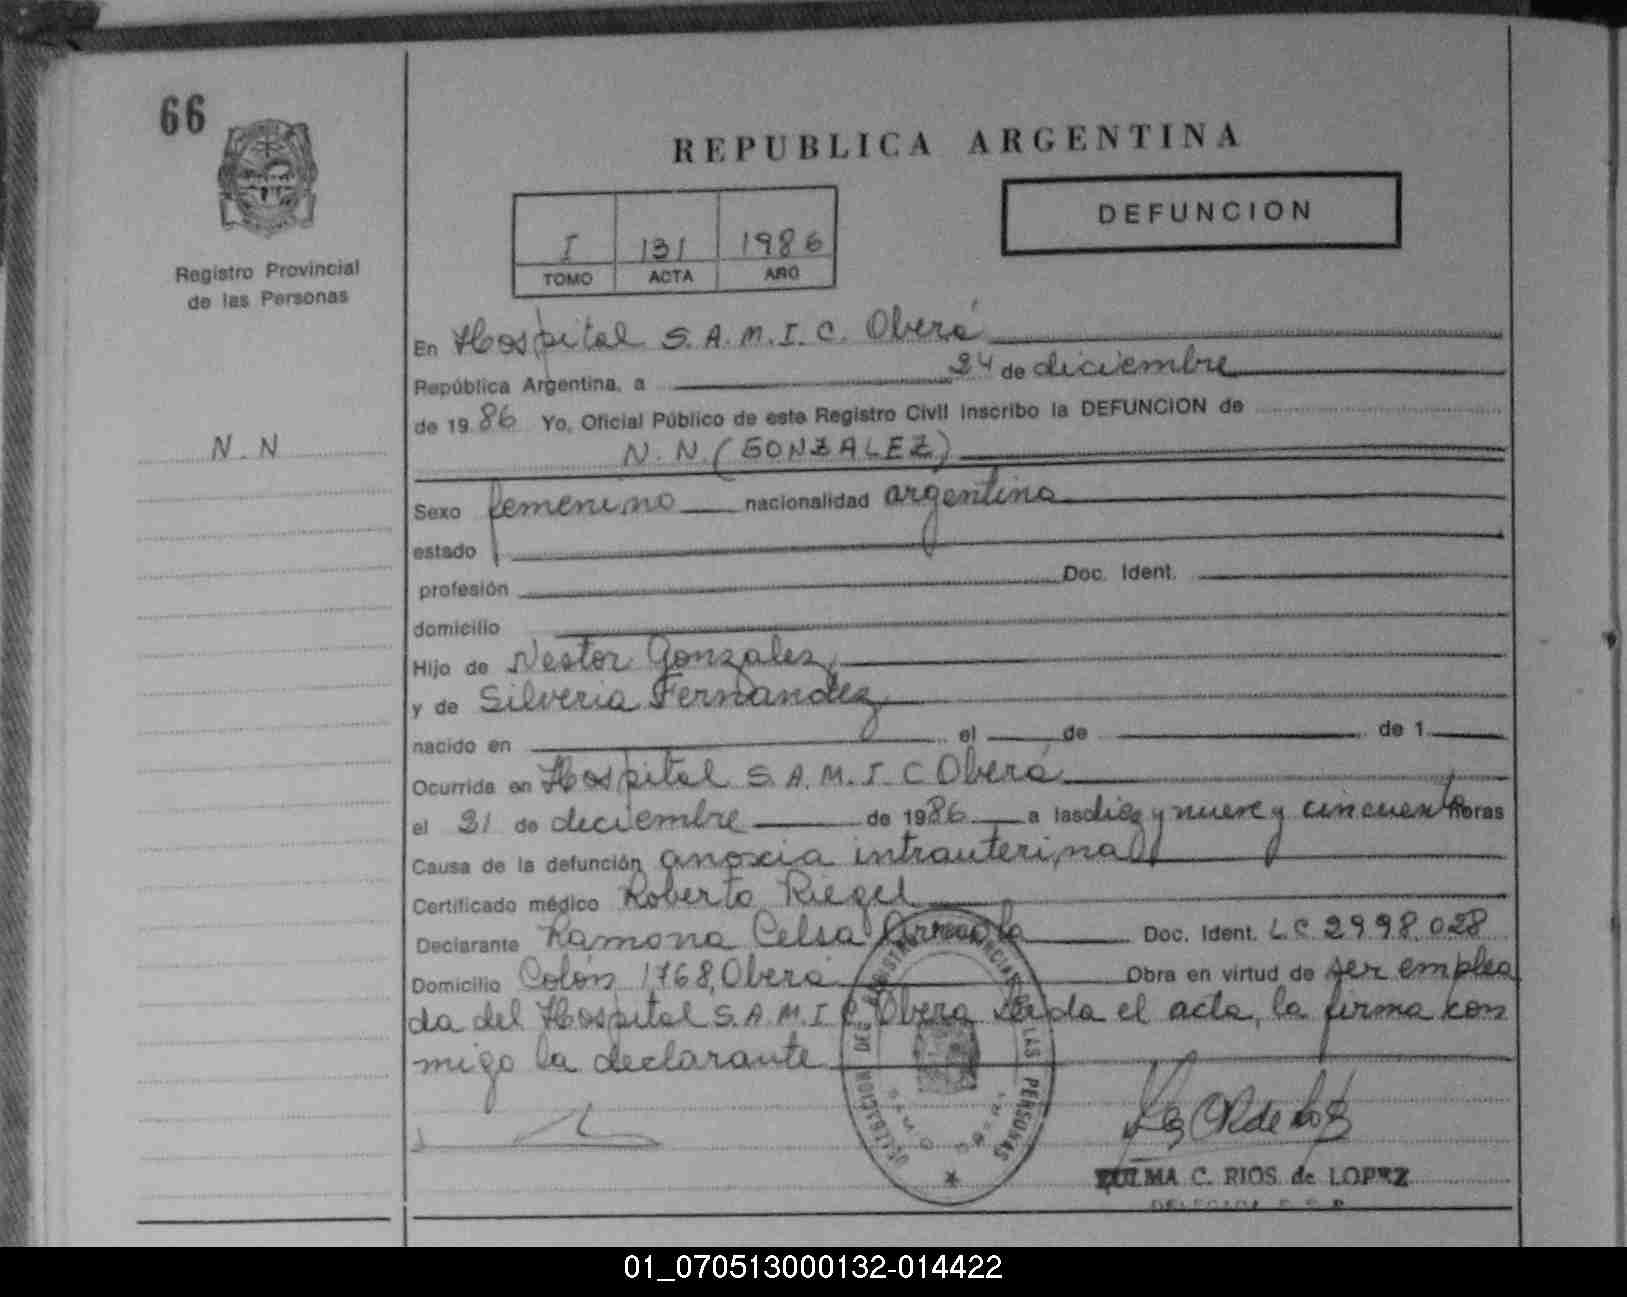 66
REPUBLICA ARGENTINA
DEFUNCION
I 131 1986
TOMO ACTA AÑO
Registro Provincial
de las Personas
En Hospital S.A.M.I.C. Oberá
República Argentina, a 24 de diciembre
de 1986 Yo, Oficial Público de este Registro Civil inscribo la DEFUNCION de
N.N
N.N. (GONZALEZ)
Sexo femenino nacionalidad argentina
estado
profesión Doc. Ident.
domicilio
Hijo de Nestor Gonzalez
y de Silveria Fernandez
nacido en el de de 1
Ocurrida en Hospital S.A.M.I.C Oberá
el 21 de diciembre de 1986 a las diez y nueve y cincuenta horas
Causa de la defunción anoxia intrauterina
Certificado médico Roberto Riegel
Declarante Ramona Celsa Doc. Ident. LC 2998.028
Domicilio Colón 1768, Oberá Obra en virtud de ser emplea
da del Hospital S.A.M.I.C Obera Leida el acta, la firma con
migo la declarante
DELEGACION DEL REGISTRO PROVINCIAL DE LAS PERSONAS
ZULMA C. RIOS de LOPEZ
01_070513000132-014422